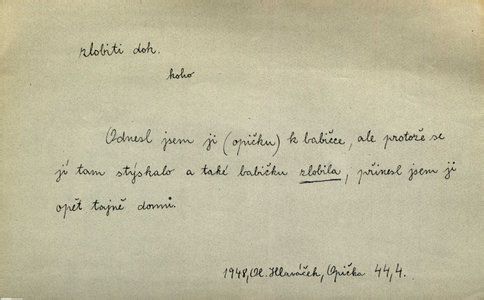 zlobiti doh.
koho
Odnesl jsem ji (opičku) k babičce, ale protože se
jí tam stýskalo a také babičku zlobila, přinesl jsem ji
opět tajně domů.
1948, Ol. Hlaváček, Opička 44,4.